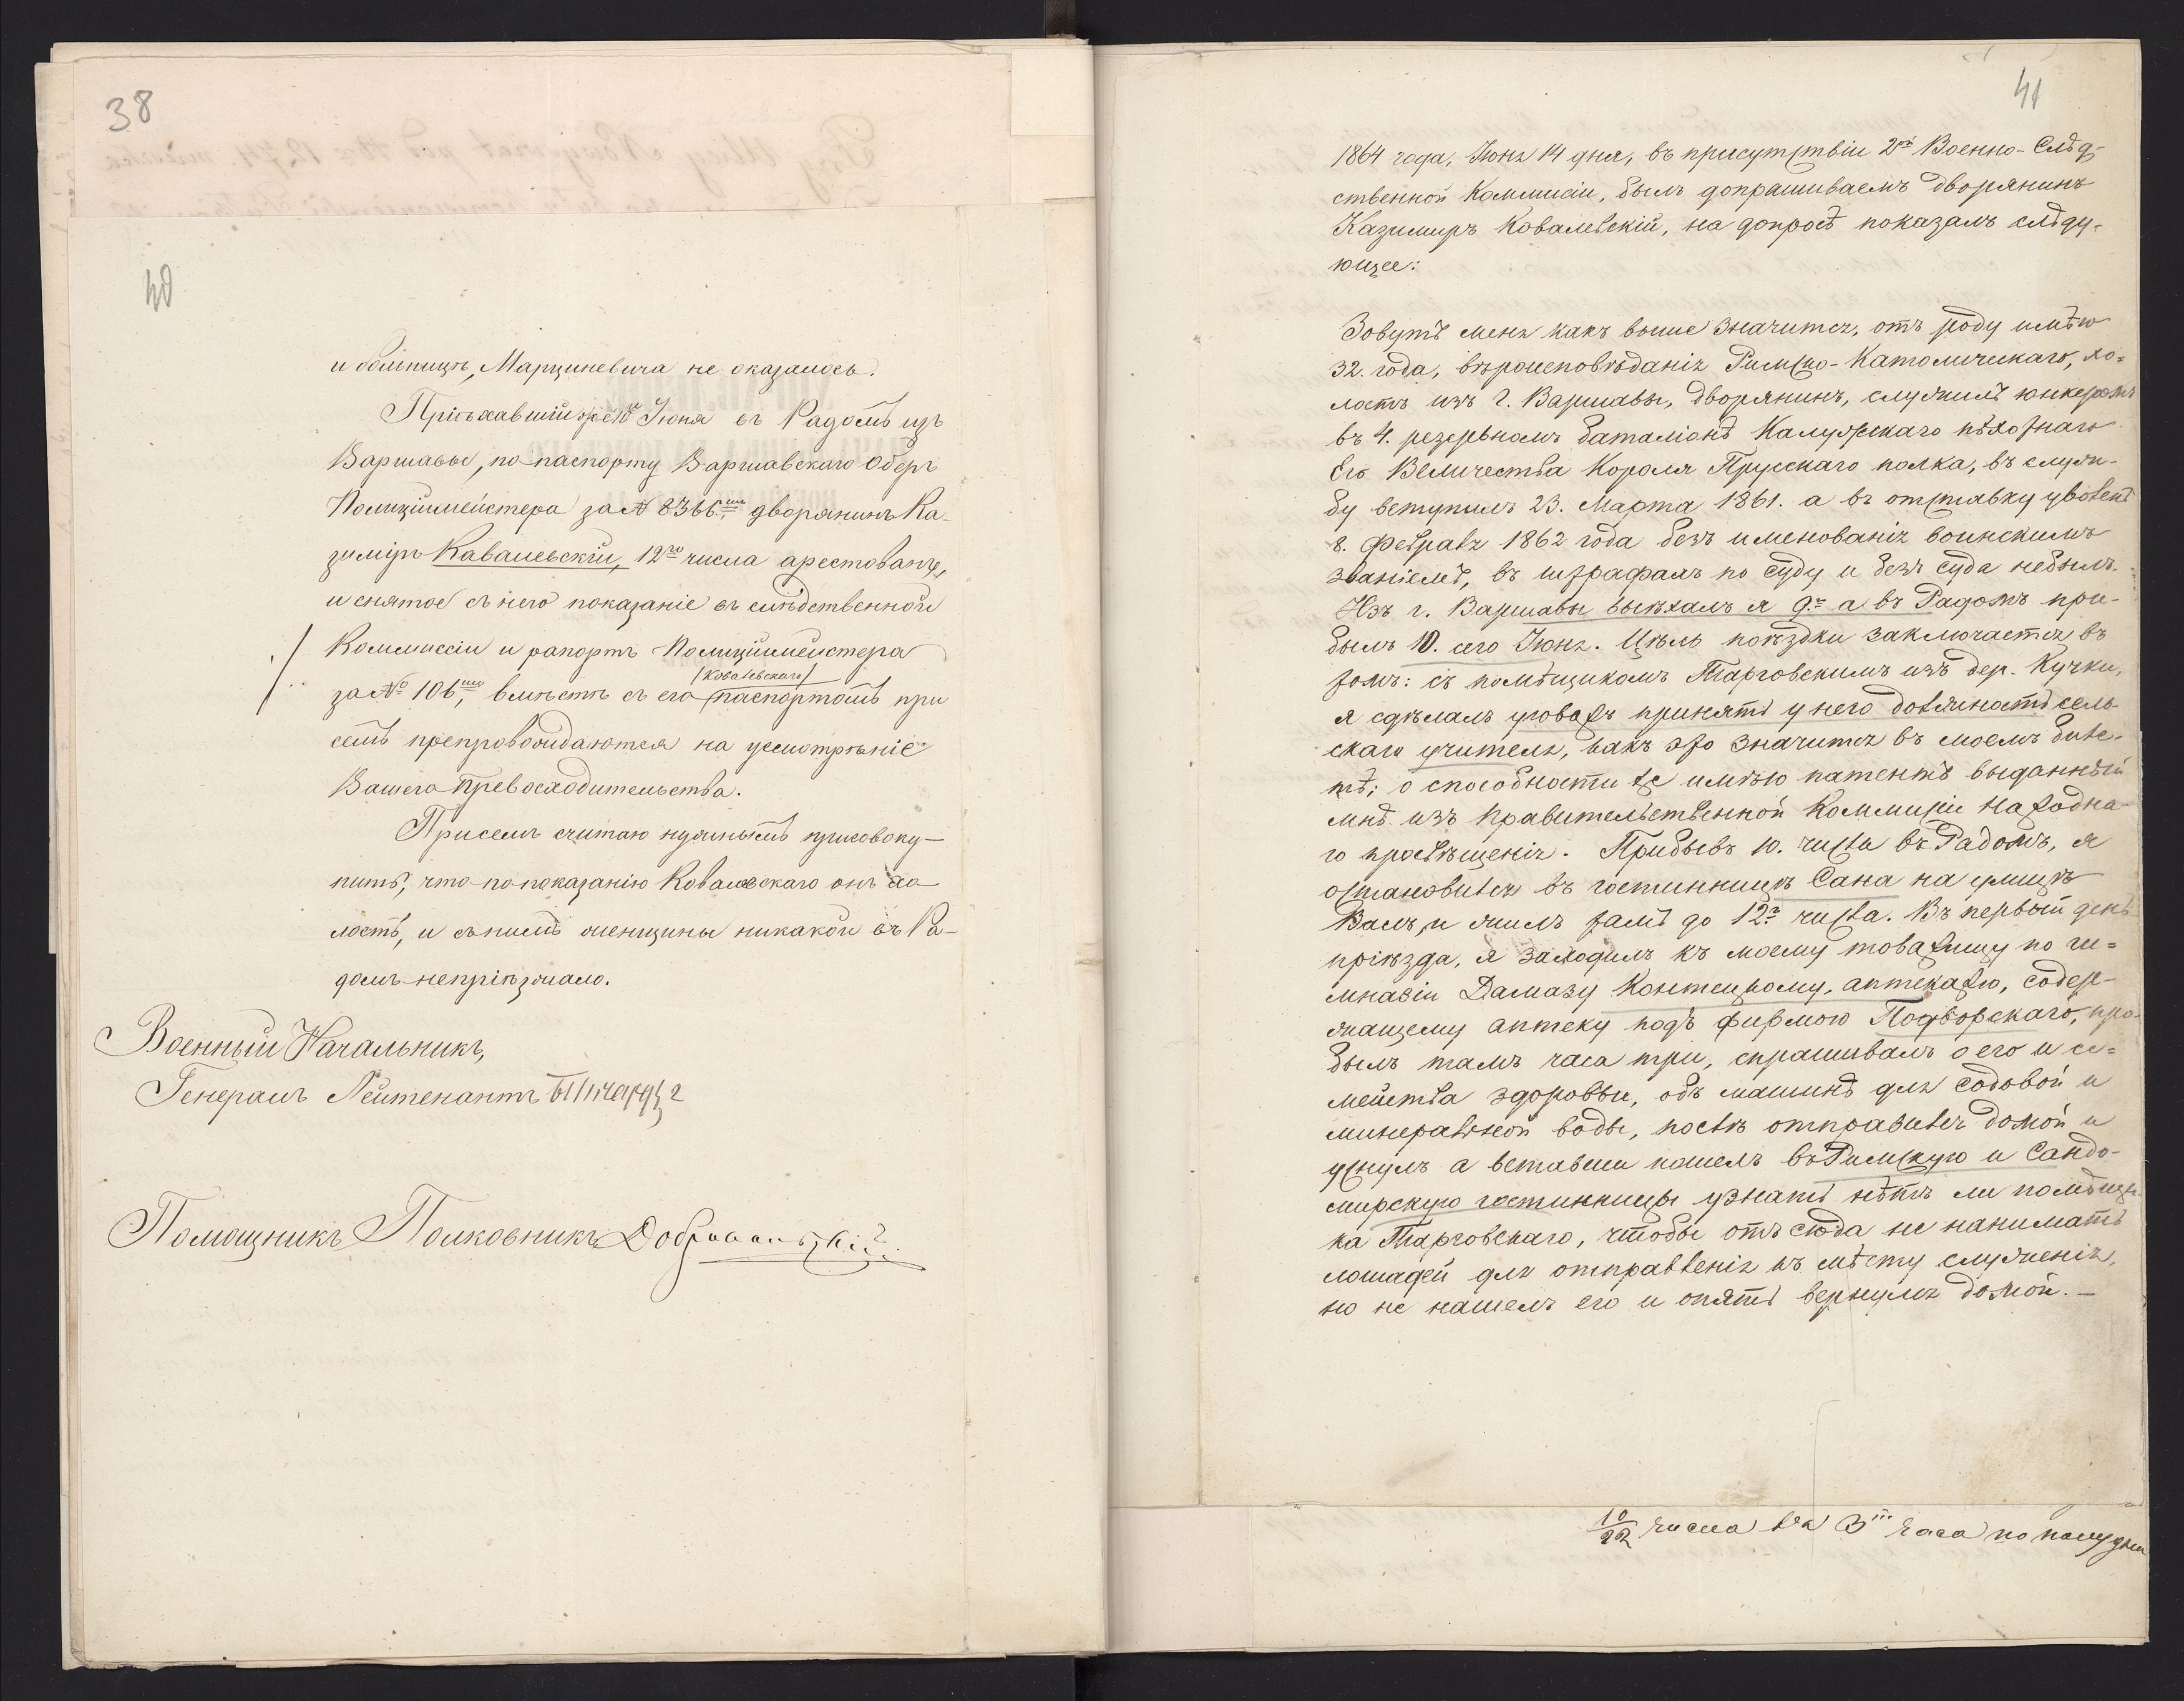 38
40
и больницѣ, Марциневича не оказалось.
Пріѣхавшій же 10го Іюня въ Радомъ изъ
Варшавы, по паспорту Варшавскаго Оберъ
Полиціймейстера за № 8366мъ, дворянинъ Ка-
зиміръ Кавалевскій, 12го числа арестованъ,
и снятое съ него показаніе въ слѣдственной
Коммиссіи и рапортъ Полиціймейстера
/Ковалевскаго/
за № 106мъ, вмѣстѣ съ его паспортомъ при
семъ препровождаются на усмотрѣніе
Вашего Превосходительства.
При семъ считаю нужнымъ присовоку-
пить, что по показанію Ковалевскаго онъ хо-
лостъ, и съ нимъ женщины никакой въ Ра-
домъ непріѣзжало.
Военный Начальникъ,
Генералъ Лейтенантъ
Помощникъ Полковникъ
41
1864 года, Іюня 14 дня, въ присутствіи 2ой Военно-Слѣд-
ственной Коммисіи, былъ допрашиваемъ дворянинъ
Казимиръ Ковалевскій, на допросѣ показалъ слѣду-
ющее:
Зовутъ меня какъ выше значится, отъ роду имѣю
32. года, вѣроисповѣданія Римско-Католическаго, хо-
лостъ изъ г. Варшавы, дворянинъ, служилъ юнкеромъ
въ 4. резервномъ баталіонѣ Калужскаго пѣхотнаго
Его Величества Короля Прусскаго полка, въ служ-
бу вступилъ 23. Марта 1861. а въ отставку уволенъ
8. Февраля 1862 года безъ именованія воинскимъ
званіемъ, въ штрафахъ по суду и безъ суда небылъ.
Изъ г. Варшавы выѣхалъ я 9.го а въ Радомъ при-
былъ 10. сего Іюня. Цѣль поѣздки заключается въ
томъ: съ помѣщикомъ Тарговскимъ изъ дер. Кучки,
я сдѣлалъ уговоръ принять у него должность сель-
скаго учителя, какъ это значится въ моемъ биле-
тѣ; о способности же имѣю патентъ выданный
мнѣ изъ Правительственной Коммисіи Народна-
го просвѣщенія. Прибывъ 10. числа въ Радомъ, я
остановился въ гостинницѣ Сана на улицѣ
Валъ, и жилъ тамъ до 12го числа. Въ первый день
пріѣзда, я заходилъ къ моему товарищу по ги-
мназіи Дамазу Контецкому, аптекарю, содер-
жащему аптеку подъ фирмою Подворскаго, про-
былъ тамъ часа три, спрашивалъ о его и се-
мейства здоровьи, объ машинѣ для содовой и
минеральной воды, послѣ отправился домой и
уснулъ а вставши пошелъ въ Римскую и Сандо-
мирскую гостинницы узнать нѣтъ ли помѣщи-
ка Тарговскаго, чтобы отъ сюда не нанимать
лошадей для отправленія къ мѣсту служенія,
но не нашелъ его и опять вернулся домой. —
10/22 числа въ 3 часа по полудни